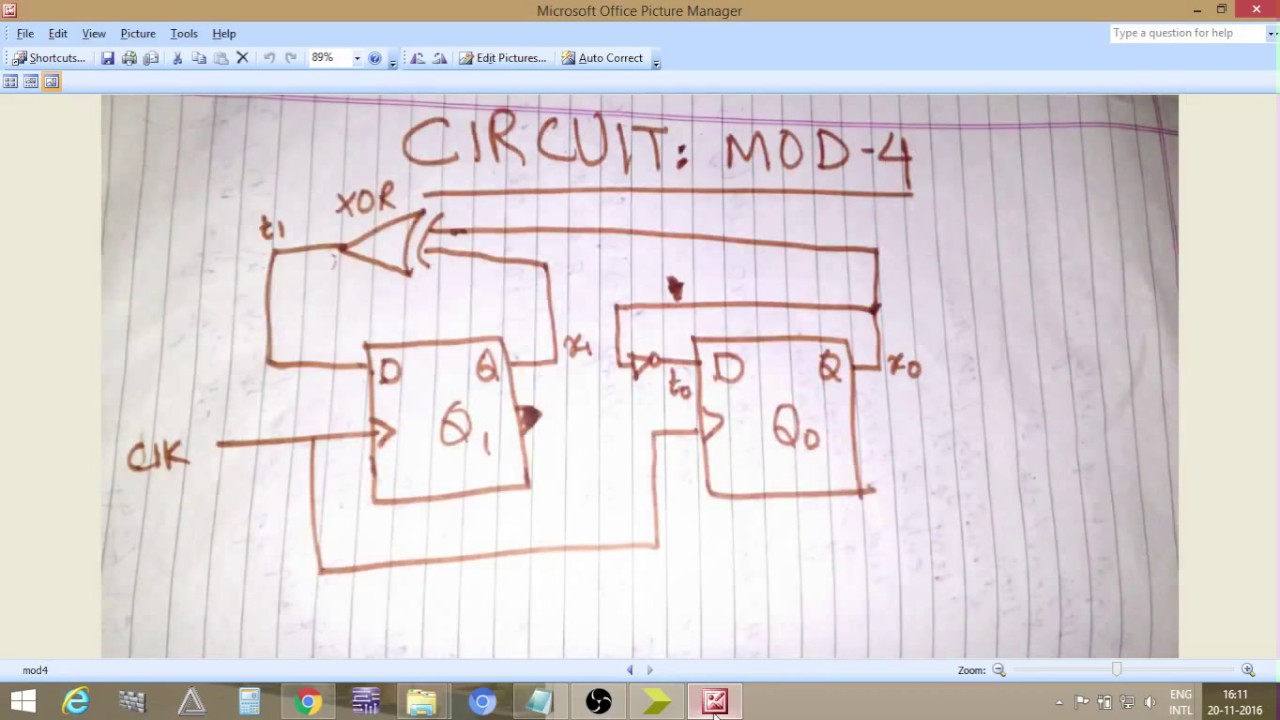 Microsoft Office Picture Manager
File Edit View Picture Tools Help
Type a question for help
Shortcuts... 89% Edit Pictures... Auto Correct
CIRCUIT: MOD-4
XOR
t1
x1
D Q
Q1
t0
D Q
Q0
x0
ClK
mod4
Zoom:
ENG
INTL
16:11
20-11-2016